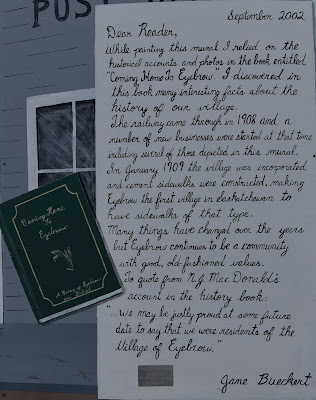 POS
September 2002
Dear Reader,
While painting this mural I relied on the
historical accounts and photos in the book entitled
"Coming Home To Eyebrow." I discovered in
this book many interesting facts about the
history of our village.
The railway came through in 1908 and a
number of new businesses were started at that time
including several of those depicted in this mural.
In January 1909 the village was incorporated
and cement sidewalks were constructed, making
Eyebrow the first village in Saskatchewan to
have sidewalks of that type.
Many things have changed over the years
but Eyebrow continues to be a community
with good, old-fashioned values.
To quote from N.J. MacDonald's
account in the history book:
"... We may be justly proud at some future
date to say that we were residents of the
Village of Eyebrow."
Jane Bueckert
Coming Home
Eyebrow
A History of Eyebrow